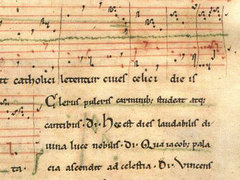 tt catholici letentur ciues celici die is
Clerus pulcris carminib; studeat atq;
cantibus. D. Hec est dies laudabilis di
uina luce nobilis. D. Qua iacob; pala
cia ascendit ad celestia. D. Vincens
ta.